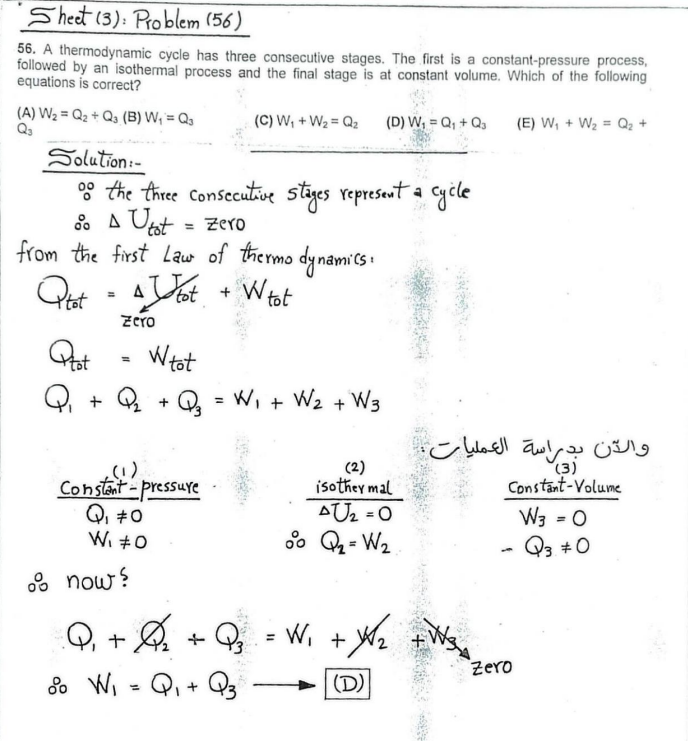 Sheet (3): Problem (56)
56. A thermodynamic cycle has three consecutive stages. The first is a constant-pressure process,
followed by an isothermal process and the final stage is at constant volume. Which of the following
equations is correct?
(A) W₂ = Q₂ + Q₃ (B) W₁ = Q₃ (C) W₁ + W₂ = Q₂ (D) W₁ = Q₁ + Q₃ (E) W₁ + W₂ = Q₂ +
Q₃
Solution:-
∵ the three consecutive stages represent a cycle
∴ Δ Utot = zero
from the first Law of thermodynamics:
Qtot = Δ Utot + Wtot
zero
Qtot = Wtot
Q₁ + Q₂ + Q₃ = W₁ + W₂ + W₃
والآن بدراسة العمليات:
(1) (2) (3)
Constant-pressure isothermal Constant-Volume
Q₁ ≠ 0 ΔU₂ = 0 W₃ = 0
W₁ ≠ 0 ∴ Q₂ = W₂ - Q₃ ≠ 0
∴ now:
Q₁ + Q₂ + Q₃ = W₁ + W₂ + W₃
zero
∴ W₁ = Q₁ + Q₃ → (D)